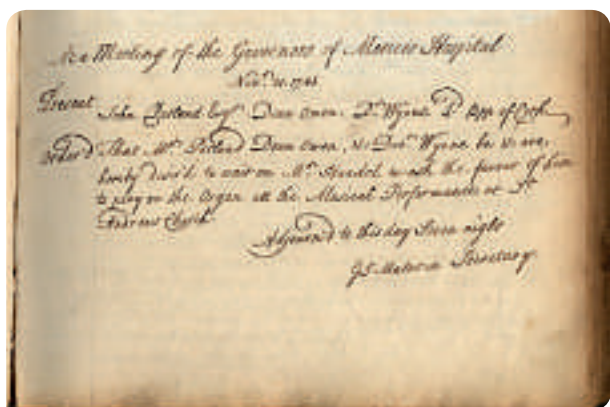 At a Meeting of the Governors of Mercers Hospital
Nov.r 21. 1741
Present John Esq.r Dean Owen D.r Wynne Bpp of Cork
Order'd That M.r Putland Dean Owen, & Doc.r Wynne be & are
hereby desir'd to wait on M.r Handel to ask the favour of him
to play on the Organ at the Musical Performance at S.t
Andrews Church
Adjourned to this day Seven night
Secretary